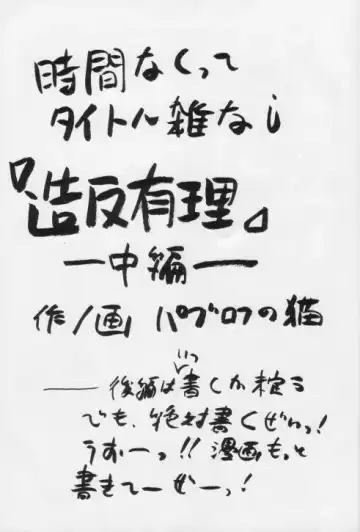 時間なくって
タイトル雑なし
『造反有理』
ー中編ー
作/画 パブロフの猫
いつ
── 後編は書くか未定
でも、絶対書くぜぃっ!
うおーっ!! 漫画もっと
書きてーぜーっ!